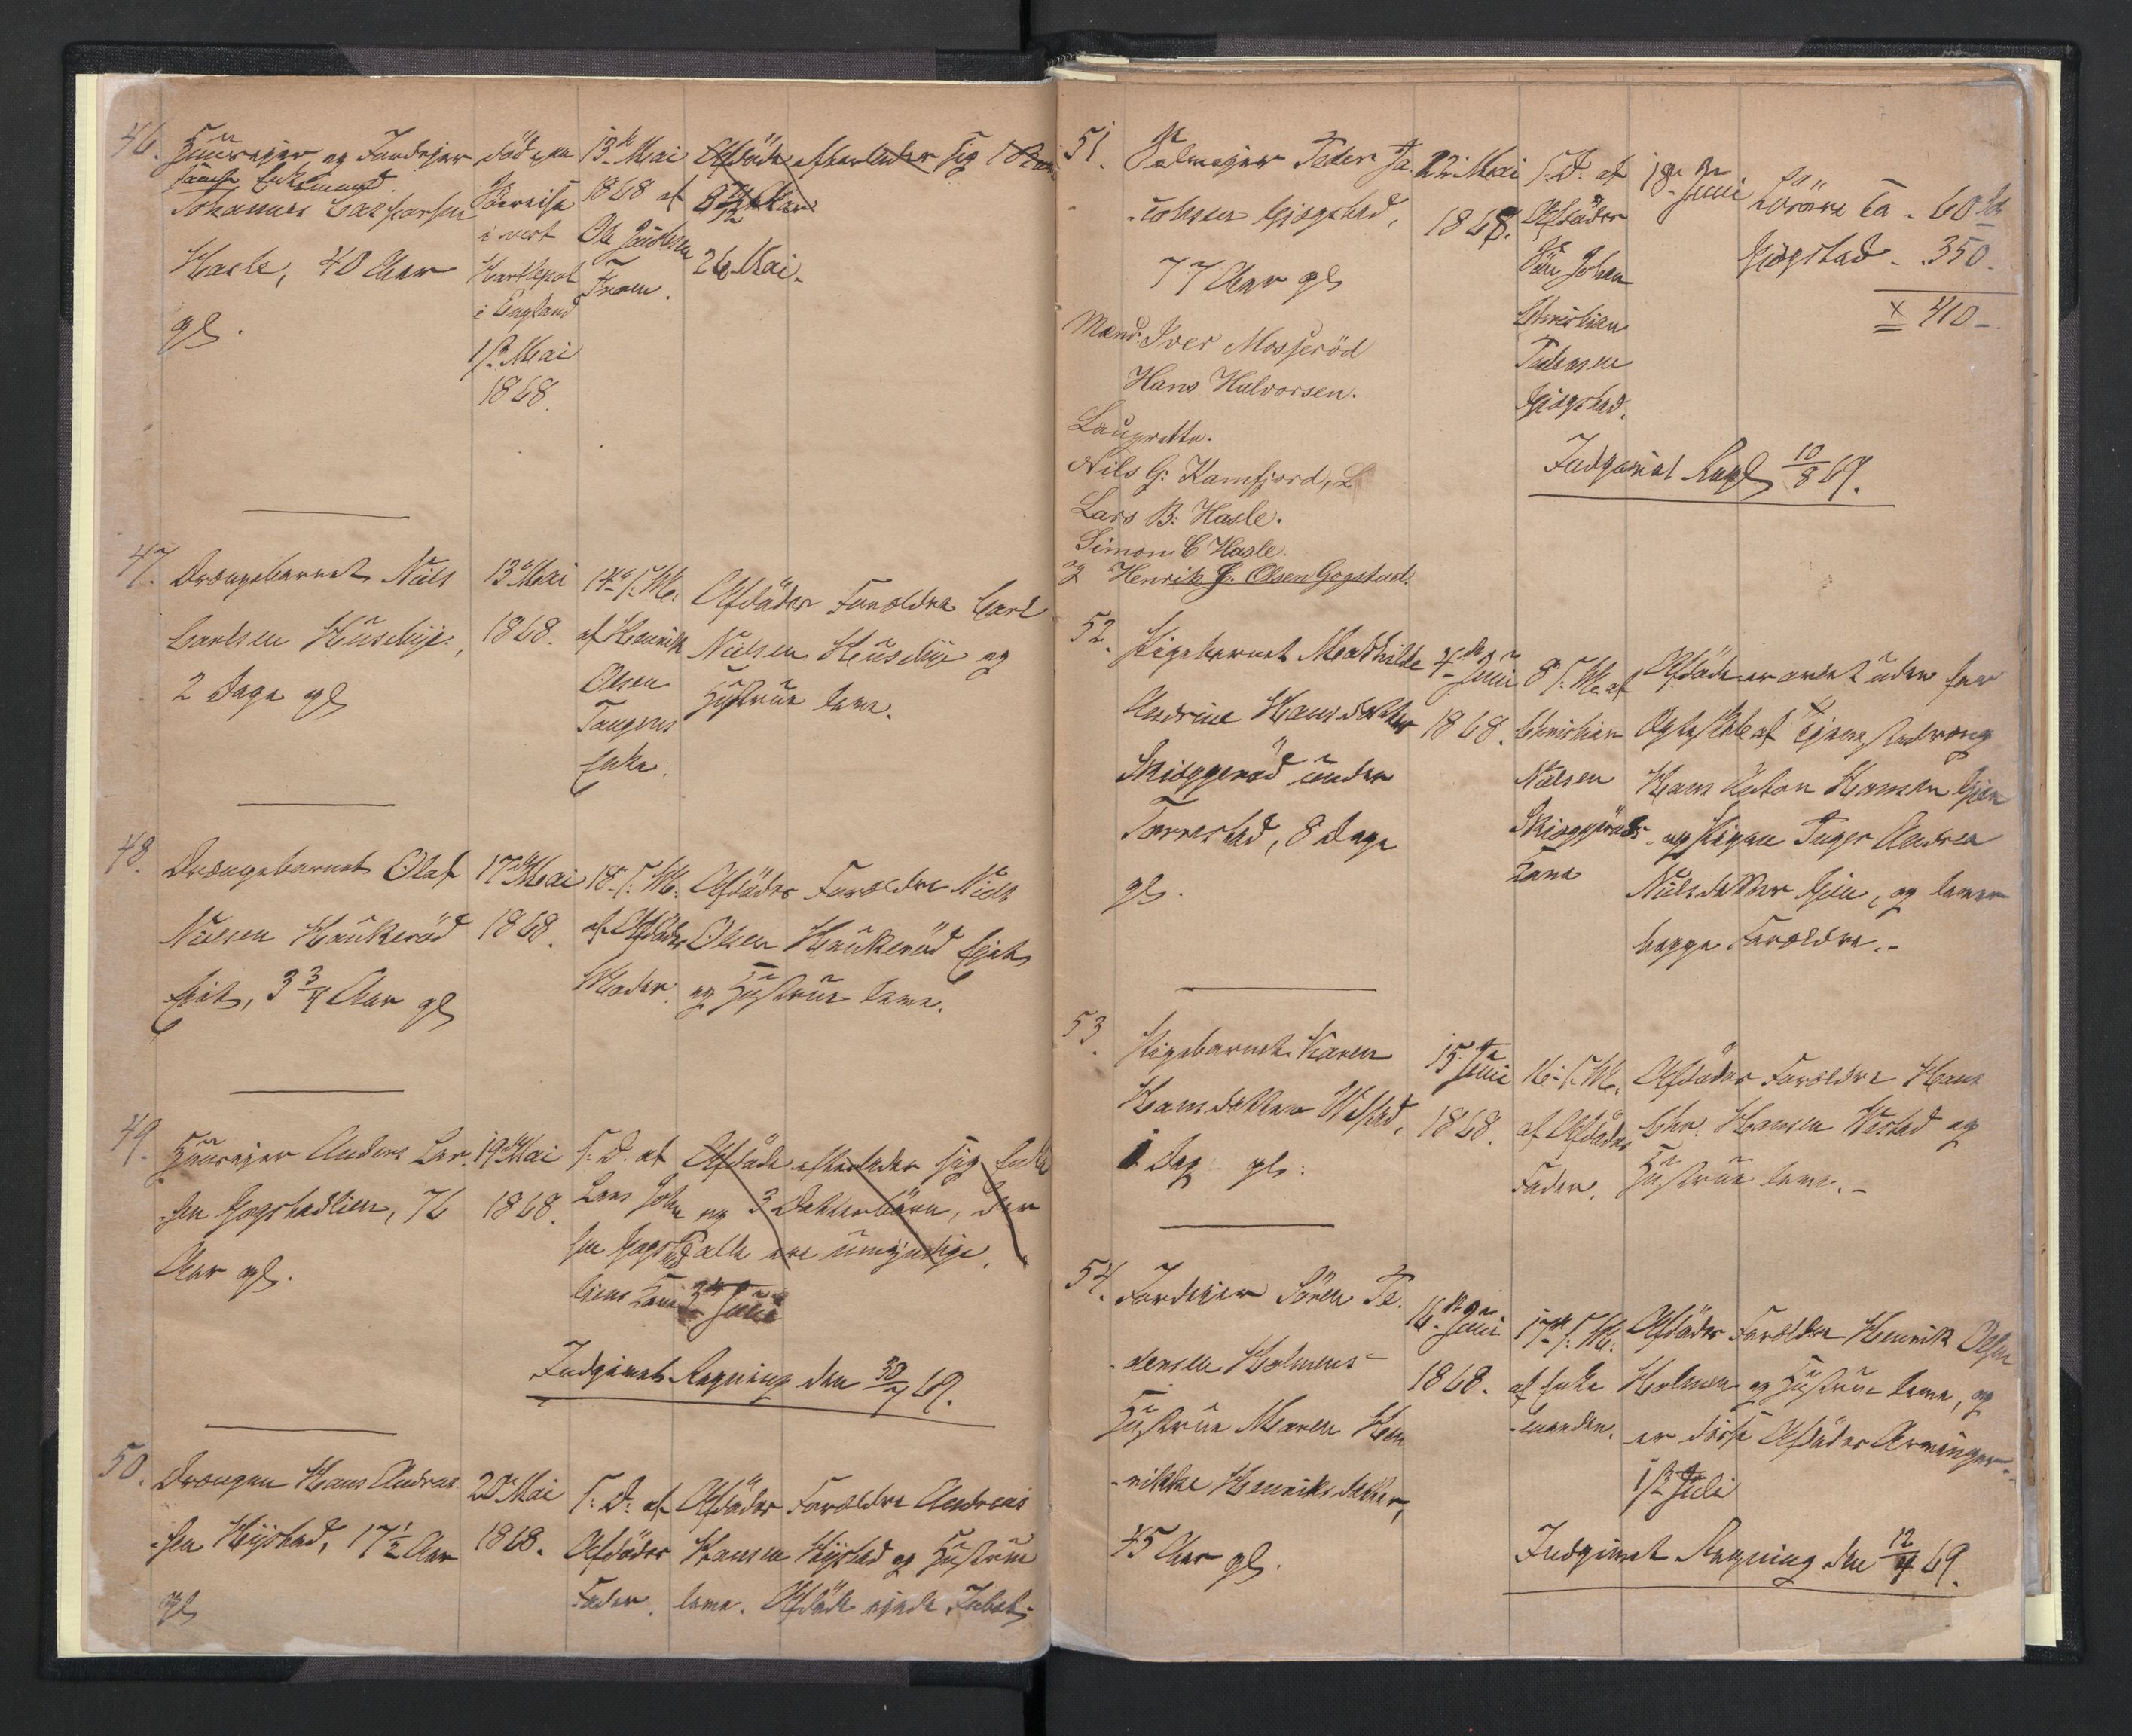 46.
Huuseier og Jordeier
samt Enkemand
Johannes Caspersen
Hasle, 40 Aar
gl.
död paa
Reise
i vest
Hartlepol
i England
1ste Mai
1868.
13de Mai
1868 af
Ole Paulsen
Fram.
Afdøde efterlader sig 1 Barn
26 Mai.
47.
Drengebarnet Niels
Carlsen Huseby,
2 Dage gl
13de Mai
1868.
14de s. M.
af Henrik
Olsen
Tangens
Enke.
Afdødes Forældre Carl
Nielsen Huseby og
Hustrue leve.
48.
Drengebarnet Olaf
Nielsen Haukeröd
Eget, 3 3/4 Aar gl
17de Mai
1868.
18de s. M.
af Afdødes
Moder.
Afdødes Forældre Niels
Olsen Haukeröd Eget
og Hustrue leve.
49.
Huuseier Anders Lar-
-sen Gogstadlien, 76
Aar gl.
19de Mai
1868.
s. D. af
Lars John
sen Gogstad
liens Kone
Afdøde efterlader sig Enke
og 3 Datterbörn, der
alle ere umyndige.
3die Juli
Indgivet Regning den 30/7 69.
50.
Drengen Hans Andrea-
-sen Nystad, 17 1/2 Aar
gl
20de Mai
1868.
s. D. af
Afdødes
Fader.
Afdødes Forældre Andreas
Hansen Nystad og Hustrue
leve. Afdøde eiede Intet.
51.
Selveier Peder Ja-
-cobsen Gjogstad,
77 Aar gl
Mænd: Iver Mosseröd
Hans Halvorsen.
Laugrette.
Nils G: Kamfjord, L
Lars B: Hasle.
Simon C Hasle.
og Henrik J. Olsen Gogstad.
22 Mai
1868.
s. D. af
Afdødes
Sön Johan
Christian
Pedersen
Gjogstad.
18de Juni
60
Gjogstad - 350.
X 410 -
Indgivet Regl 10/8 69.
52.
Pigebarnet Mathilde
Andrine Hansdatter
Skiaggeröd under
Torrestad, 8 Dage
gl.
7de Juni
1868.
8 s. M. af
Christian
Nielsen
Skiaggeröds
Kone
Afdøde er avlet uden for
Ægteskab af Tjenestedreng
Hans Anton Hansen Gjen
og Pigen Inger Andrea
Nielsdatter Gjen, og lever
begge Forældre.-
53.
Pigebarnet Karen
Hansdatter Vestad,
1 Dag gl:
15de Juni
1868.
16de s. M.
af Afdødes
Fader.
Afdødes Forældre Hans
Chr. Hansen Vestad og
Hustrue leve. -
54.
Jordeier Sören Pe-
-dersen Holmens
Hustrue Maren Hen-
-rikke Henriksdatter,
45 Aar gl.
16de Juni
1868.
17de s. M.
af Enke
-manden.
Afdødes Forældre Henrik Olsen
Holmen og Hustrue leve, og
er disse Afdødes Arvinger.
1ste Juli
Indgivet Regning den 12/4 69.